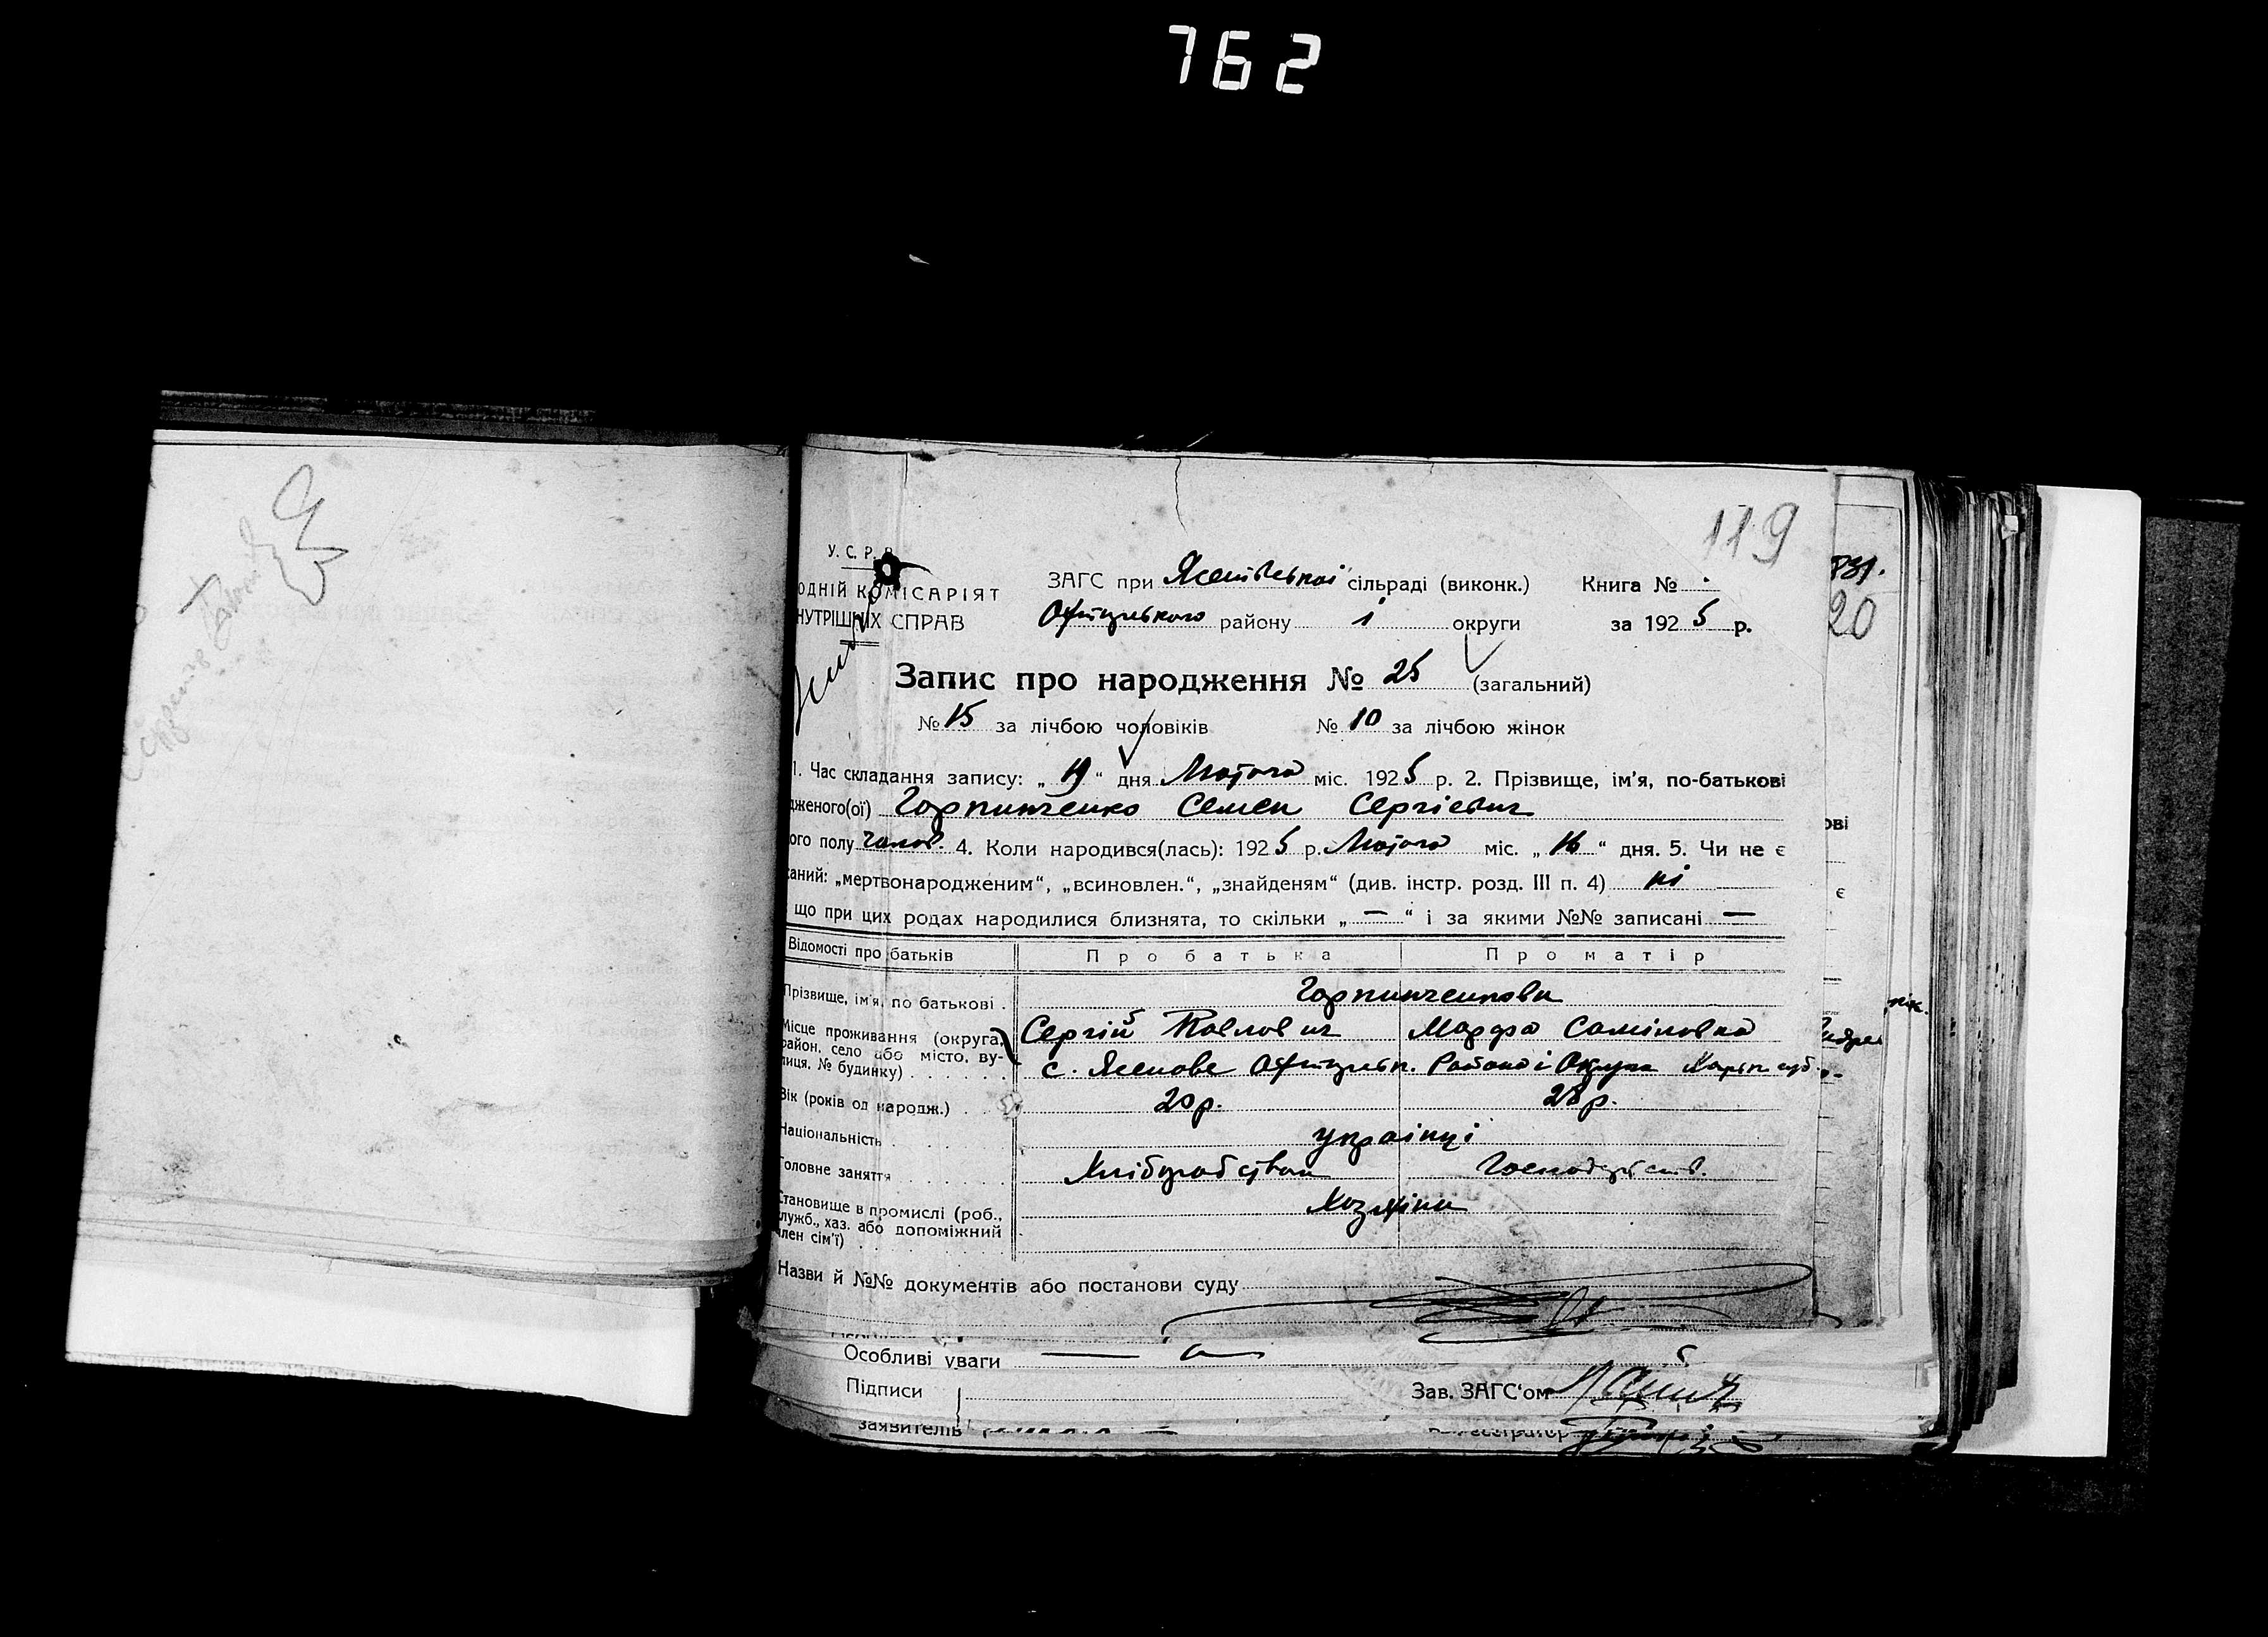 762
119
У. С. Р. Р.
ОДНІЙ КОМІСАРІЯТ
НУТРІШНІХ СПРАВ
ЗАГС при сільраді (виконк.) Книга №
району 1 округи за 1925 р.
20
Запис про народження № 25 (загальний)
№ 15 за лічбою чоловіків № 10 за лічбою жінок
1. Час складання запису: „ 19 “ дня Лютого міс. 1925 р. 2. Прізвище, ім’я, по-батькові
дженого(ої) Горпинченко Семен Сергієвич
ого полу чолов. 4. Коли народився(лась): 1925 р. Лютого міс. „ 16 “ дня. 5. Чи не є
каний: „мертвонародженим“, „всиновлен.“, „знайденям“ (див. інстр. розд. III п. 4) ні
що при цих родах народилися близнята, то скільки „ — “ і за якими №№ записані —
Відомості про батьків Про батька Про матір
Прізвище, ім’я, по батькові . Горпинченкови
Місце проживання (округа, Сергій Павлович Марфа
район, село або місто, ву-
лиця, № будинку) . . . . . . с. Ясенове Району і Округи
Вік (років од народж.) . . 20 р. 28 р.
Національність . українці
Головне заняття . . . . . . Хліборобство
Становище в промислі (роб., Хозяїни
служб., хаз. або допоміжний
член сім’ї) . .
Назви й №№ документів або постанови суду
Особливі уваги —
Підписи Зав. ЗАГС‘ом
заявителів